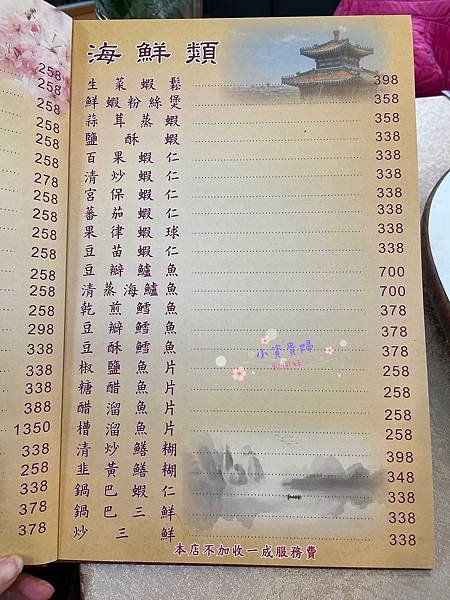 258
258
258
258
258
258
278
258
258
258
258
258
258
258
298
338
338
338
388
1350
338
258
338
378
378
海鮮類
生菜蝦鬆 398
鮮蝦粉絲煲 358
蒜茸蒸蝦 358
鹽酥蝦 338
百果蝦仁 338
清炒蝦仁 338
宮保蝦仁 338
蕃茄蝦仁 338
果律蝦球 338
豆苗蝦仁 338
豆瓣鱸魚 700
清蒸海鱸魚 700
乾煎鱈魚 378
豆瓣鱈魚 378
豆酥鱈魚 378
椒鹽魚片 258
糖醋魚片 258
醋溜魚片 258
槽溜魚片 258
清炒鱔糊 398
韭黃鱔糊 348
鍋巴蝦仁 338
鍋巴三鮮 338
炒三鮮 338
本店不加收一成服務費
小資貴婦